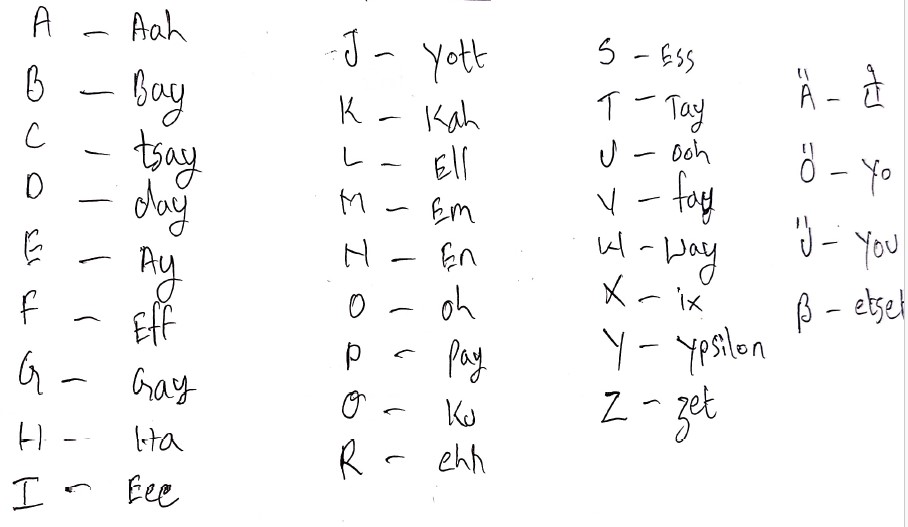 A - Aah
B - Bay
C - tsay
D - day
E - Ay
F - Eff
G - Gay
H - Ha
I - Eee
J - Yott
K - Kah
L - Ell
M - Em
N - En
O - oh
P - pay
O - Ku
R - ehh
S - Ess
T - Tay
U - ooh
V - fay
W - Way
X - ix
Y - ypsilon
Z - zet
Ä -
Ö - Yo
Ü - you
β - etset